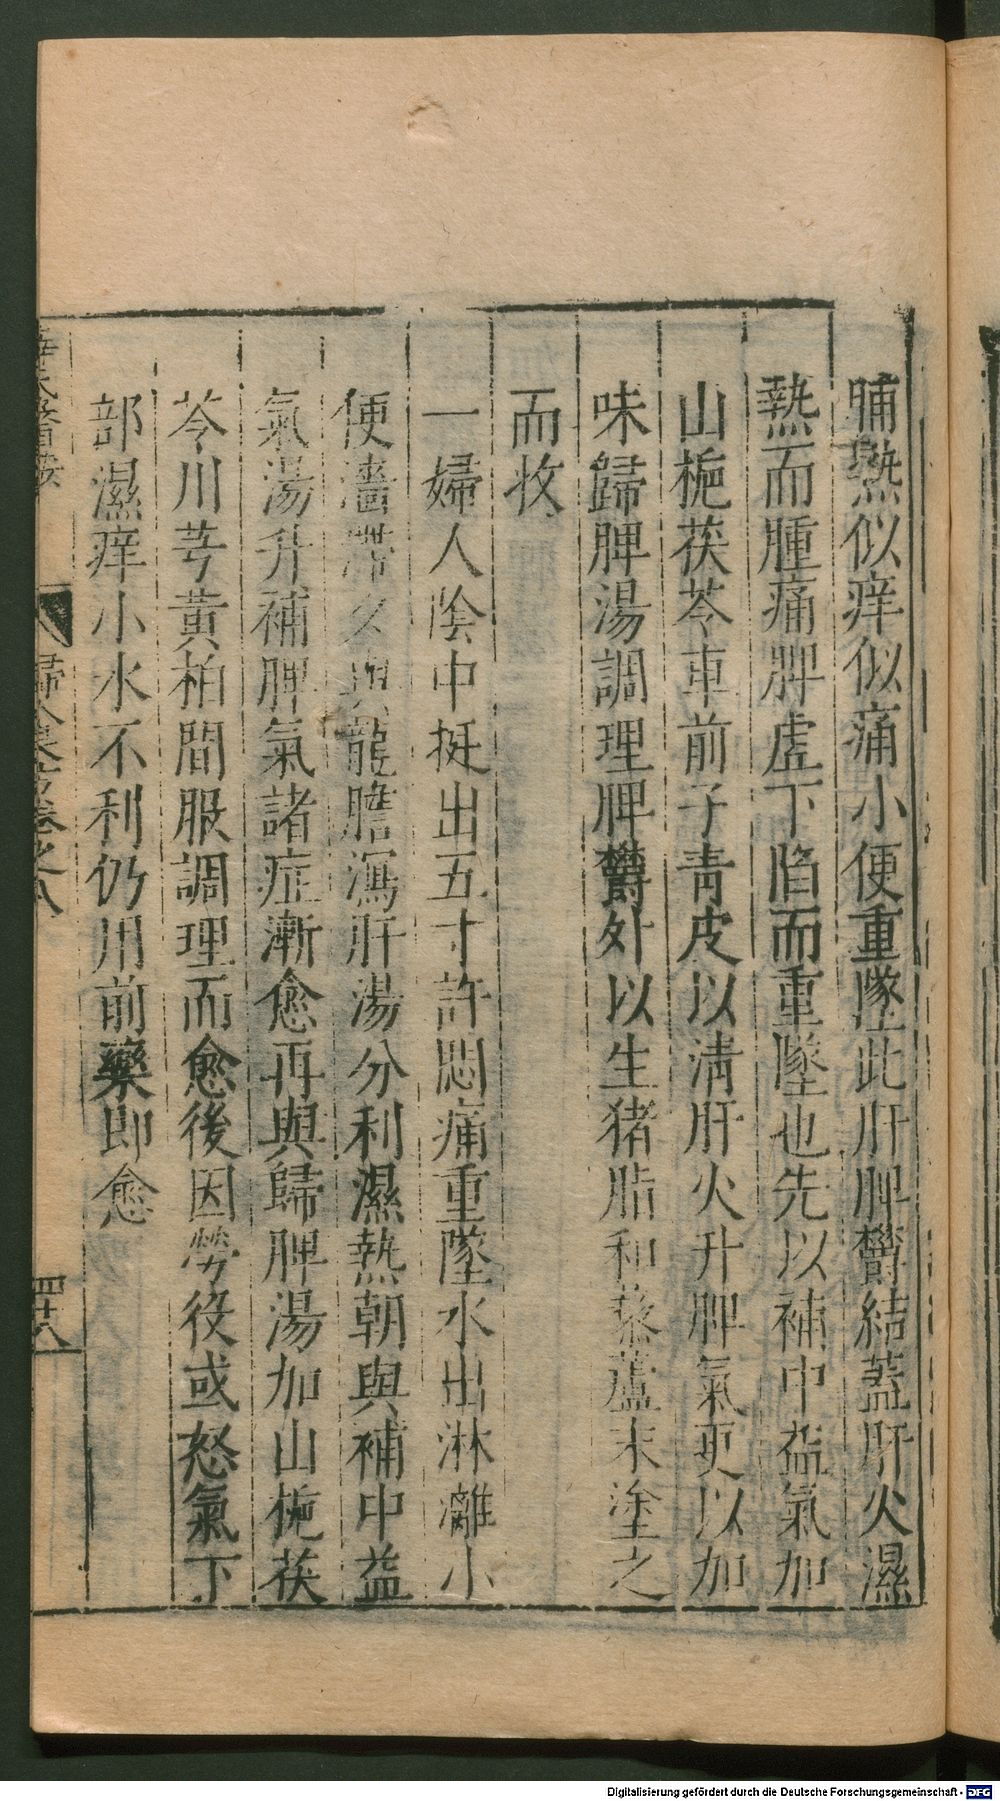 晡熱似痒似痛小便重墜此肝脾欝結蓋肝火濕
熱而腫痛脾虛下陷而重墜也先以補中益氣加
山梔茯苓車前子青皮以淸肝火升脾氣更以加
味歸脾湯調理脾欝外以生猪脂和藜蘆末塗之
而收
一婦人陰中挺出五寸許悶痛重墜水出淋漓小
便濇滯夕與龍膽瀉肝湯分利濕熱朝與補中益
氣湯升補脾氣諸症漸愈再與歸脾湯加山梔茯
苓川芎黃栢間服調理而愈後因勞役或怒氣下
部濕痒小水不利仍用前藥即愈
薛氏醫按
婦人良方卷之八
四十八
Digitalisierung gefördert durch die Deutsche Forschungsgemeinschaft - DFG